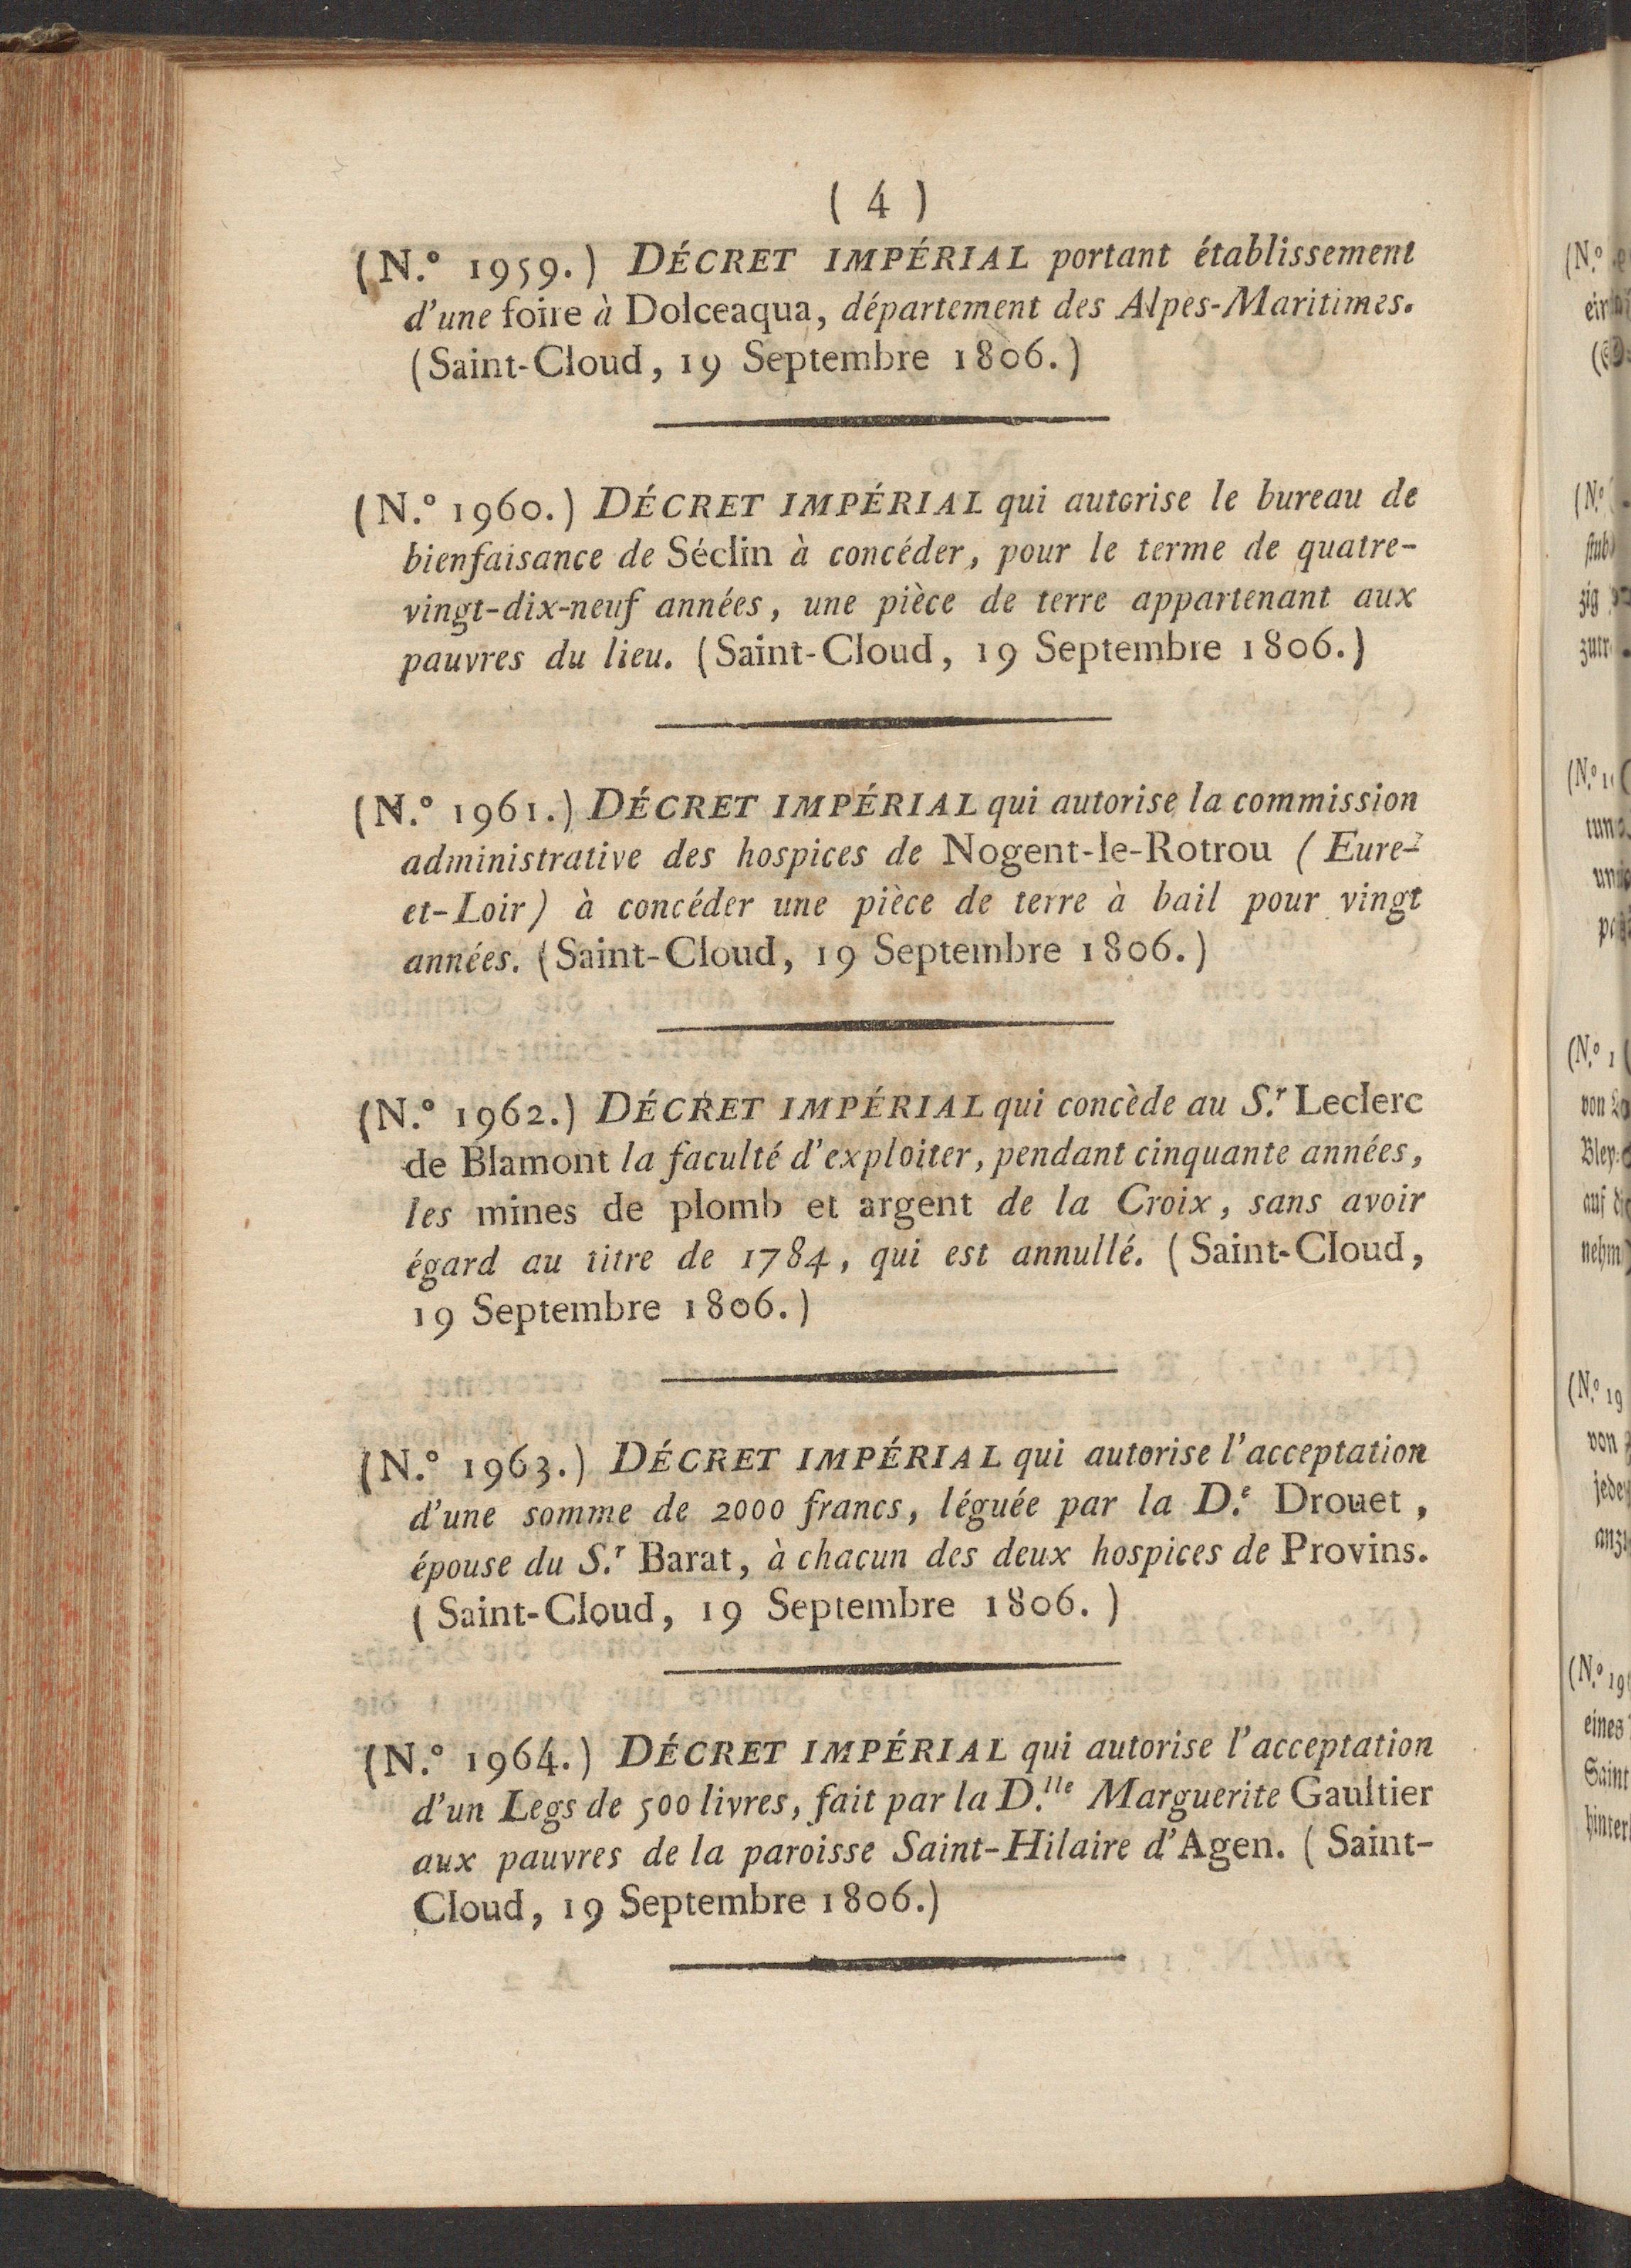 ( 4 )
(N.º 1959.) DÉCRET IMPÉRIAL portant établissement
d'une foire à Dolceaqua, département des Alpes-Maritimes.
(Saint-Cloud, 19 Septembre 1806.)
(N.º 1960.) DÉCRET IMPÉRIAL qui autorise le bureau de
bienfaisance de Séclin à concéder, pour le terme de quatre-
vingt-dix-neuf années, une pièce de terre appartenant aux
pauvres du lieu. (Saint-Cloud, 19 Septembre 1806.)
(N.º 1961.) DÉCRET IMPÉRIAL qui autorise la commission
administrative des hospices de Nogent-le-Rotrou (Eure-
et-Loir) à concéder une pièce de terre à bail pour vingt
années. (Saint-Cloud, 19 Septembre 1806.)
(N.º 1962.) DÉCRET IMPÉRIAL qui concède au S.r Leclerc
de Blamont la faculté d'exploiter, pendant cinquante années,
les mines de plomb et argent de la Croix, sans avoir
égard au titre de 1784, qui est annullé. (Saint-Cloud,
19 Septembre 1806.)
(N.º 1963.) DÉCRET IMPÉRIAL qui autorise l'acceptation
d'une somme de 2000 francs, léguée par la D.e Drouet,
épouse du S.r Barat, à chacun des deux hospices de Provins.
(Saint-Cloud, 19 Septembre 1806.)
(N.º 1964.) DÉCRET IMPÉRIAL qui autorise l'acceptation
d'un Legs de 500 livres, fait par la D.lle Marguerite Gaultier
aux pauvres de la paroisse Saint-Hilaire d'Agen. (Saint-
Cloud, 19 Septembre 1806.)